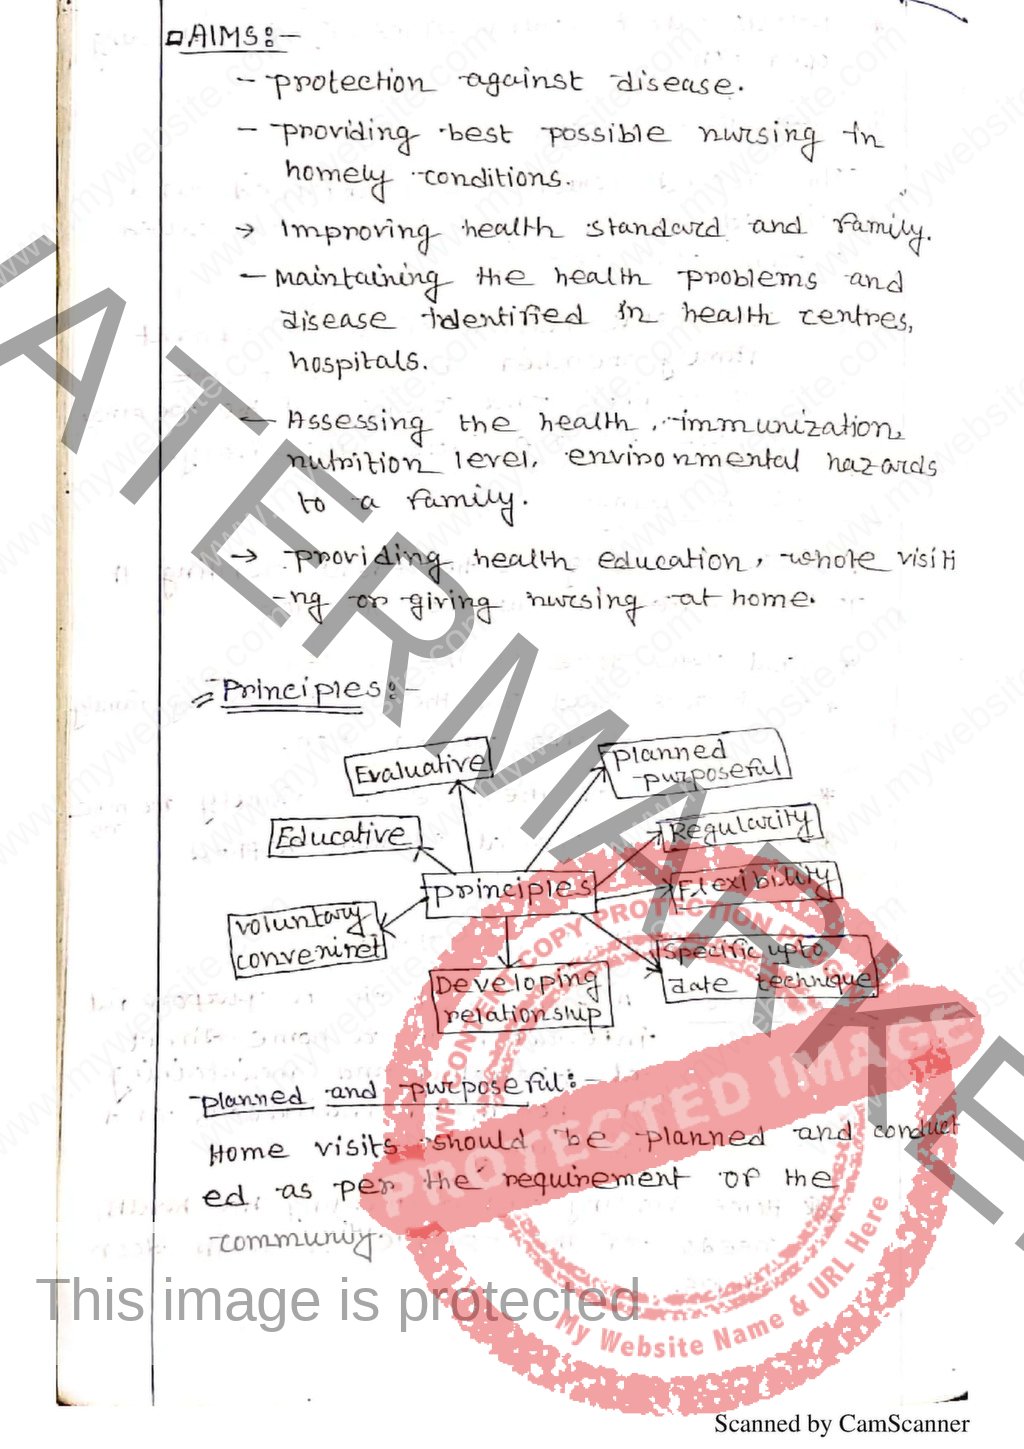 AIMS:-
- protection against disease.
- providing best possible nursing in
homely conditions.
→ Improving health standard and family.
- Maintaining the health problems and
disease identified in health centres,
hospitals.
- Assessing the health, immunization,
nutrition level, environmental hazards
to a family.
→ providing health education, whole visiti
-ng or giving nursing at home.
Principles:-
Evaluative
planned
purposeful
Educative
Regularity
principles
Flexibility
voluntary
conveniret
Specific upto
date technique
Developing
relationship
planned and purposeful:-
Home visits should be planned and conduct
ed, as per the requirement of the
community.
WATERMARKED
This image is protected
WP CONTENT COPY PROTECTION
PROTECTED IMAGE
My Website Name & URL Here
www.mywebsite.com
Scanned by CamScanner